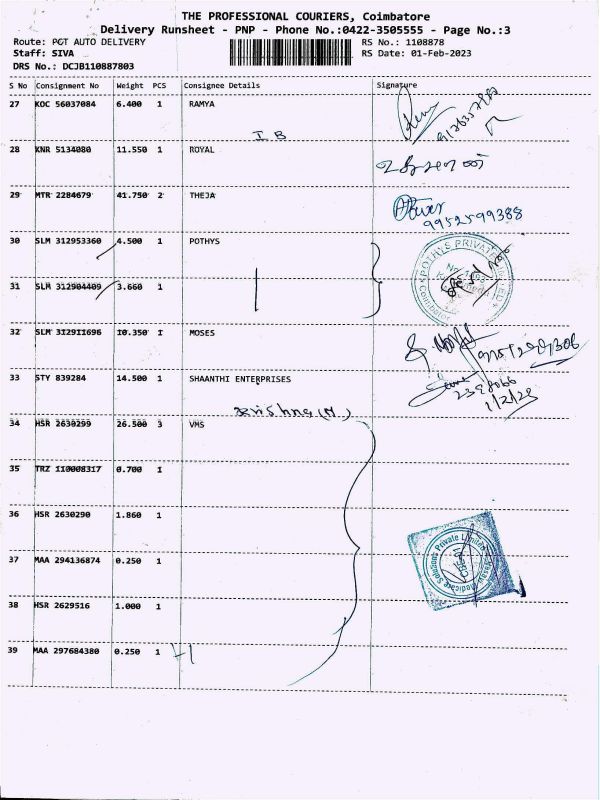 THE PROFESSIONAL COURIERS, Coimbatore
Delivery Runsheet - PNP - Phone No.:0422-3505555 - Page No.:3
Route: PGT AUTO DELIVERY RS No.: 1108878
Staff: SIVA RS Date: 01-Feb-2023
DRS No.: DCJB110887803
S No Consignment No Weight PCS Consignee Details Signature
27 KOC 56037084 6.400 1 RAMYA
I B
28 KNR 5134080 11.550 1 ROYAL
29 MTR 2284679 41.750 2 THEJA
9952599388
30 SLM 312953360 4.500 1 POTHYS
POTHYS PRIVATE
31 SLM 312904409 3.660 1
32 SLM 312911696 10.350 1 MOSES
33 STY 839284 14.500 1 SHAANTHI ENTERPRISES
1/2/23
34 HSR 2630299 26.500 3 VMS
35 TRZ 110008317 0.700 1
36 HSR 2630290 1.860 1
37 MAA 294136874 0.250 1
Private Limited
38 HSR 2629516 1.000 1
39 MAA 297684380 0.250 1